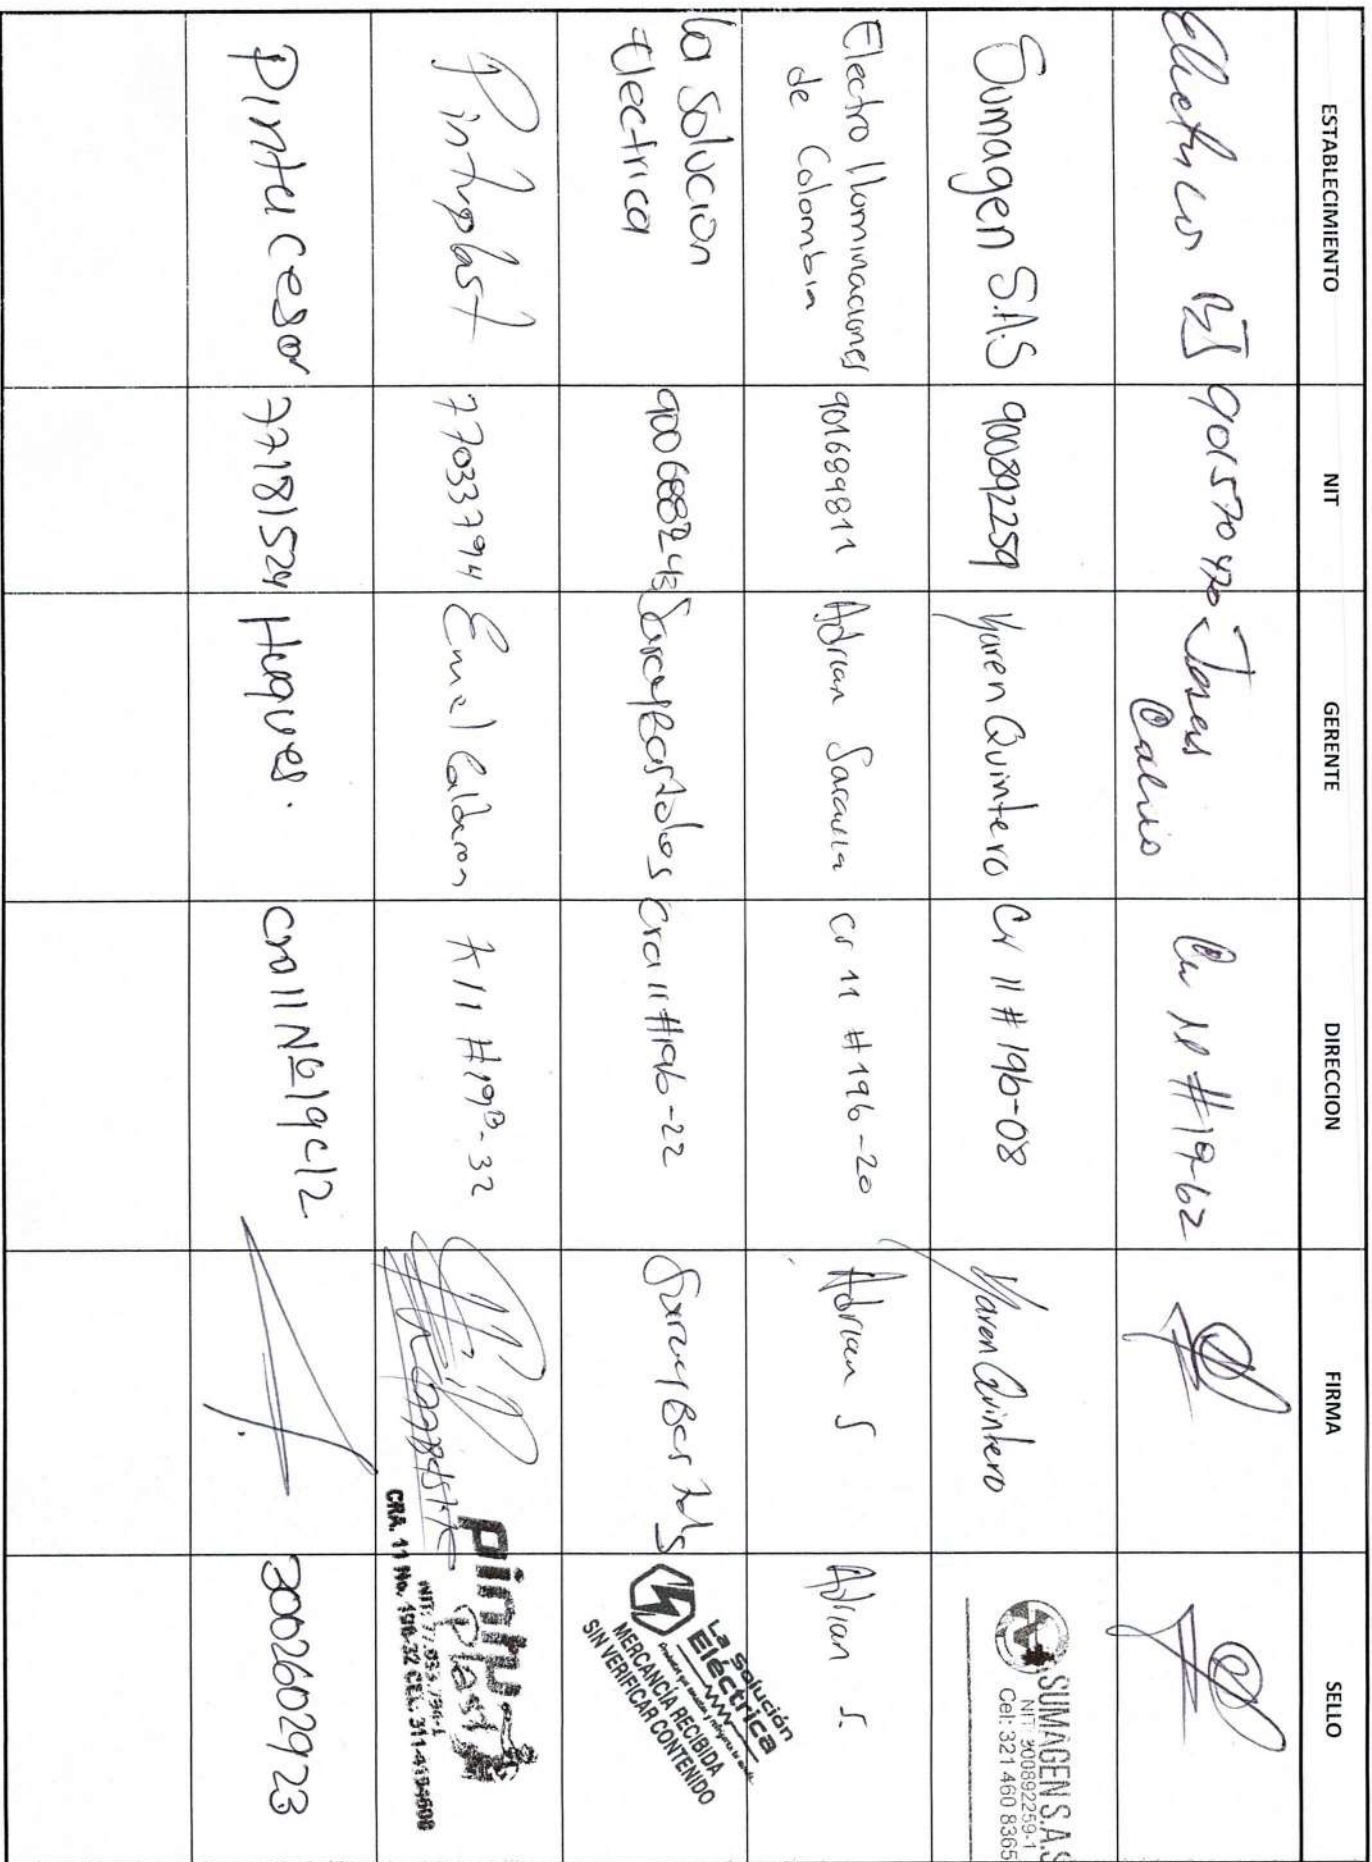 ESTABLECIMIENTO NIT GERENTE DIRECCION FIRMA SELLO
901570470
#19-62
Sumagen S.A.S 900892259 Yuren Quintero Cr 11 # 19b-08 Yaren Quintero
SUMAGEN S.A.S
NIT: 900892259-1
Cel: 321 460 8365
Electro Iluminaciones
de Colombia 901689811 Adrian Saravia cr 11 # 19b-20 Adrian S Adrian S.
La Solucion
Electrica 900688243 Cra 11 #19b-22
La Solución
Eléctrica
MERCANCIA RECIBIDA
SIN VERIFICAR CONTENIDO
Pintuplast 77033794 Calderon K 11 #19B-32
Pintu
Plast
NIT: 77.033.794-1
CRA. 11 No. 19B-32 CEL: 311-4194600
Pintu Cesar 77181524 Hugues. cra 11 Nº 19c12 3002602923